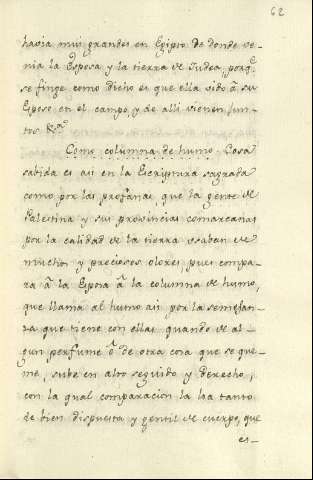 62
havia mui grandes en Egipto de donde ve-
nia la Esposa y la tierra de Judea, porq.e
se finge como dicho es que ella vido à su
Esposo en el campo, y de alli vienen jun-
tos &.a
Como columna de humo. Cosa
sabida es asi en la Escriptura sagrada
como por las profanas, que la gente de
Palestina y sus provincias comarcanas
por la calidad de la tierra usaban de
muchos y preciosos olores, pues compa-
ra à la Esposa à la columna de humo,
que llama al humo asi por la semejan-
za que tiene con ellas quando de al-
gun perfume ò de otra cosa que se que-
me, sube en alto seguido y derecho;
con la qual comparacion la ha tanto
de bien dispuesta y gentil de cuerpo, que
es-